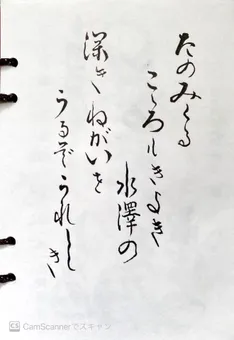 たのみくる
こゝろ
きよき
水澤の
深きねがいを
うるぞうれし
き
CS CamScannerでスキャン